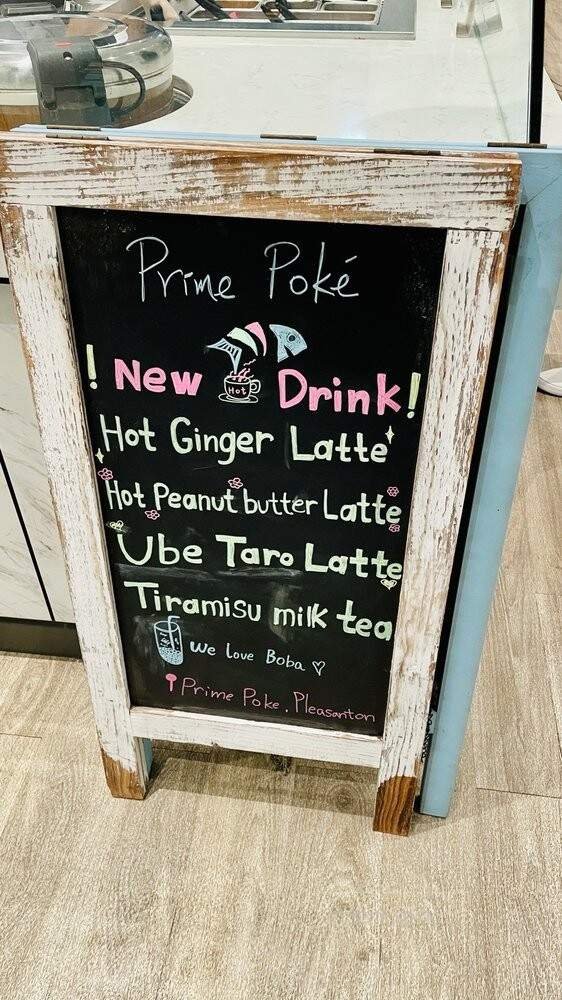 Prime Poké
! New Hot Drink!
Hot Ginger Latte
Hot Peanut butter Latte
Ube Taro Latte
Tiramisu milk tea
We Love Boba ♡
Prime Poke, Pleasanton